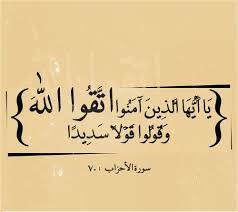 يَا أَيُّهَا الَّذِينَ آمَنُوا اتَّقُوا اللَّهَ
وَقُولُوا قَوْلًا سَدِيدًا
سورة الأحزاب ٧٠: